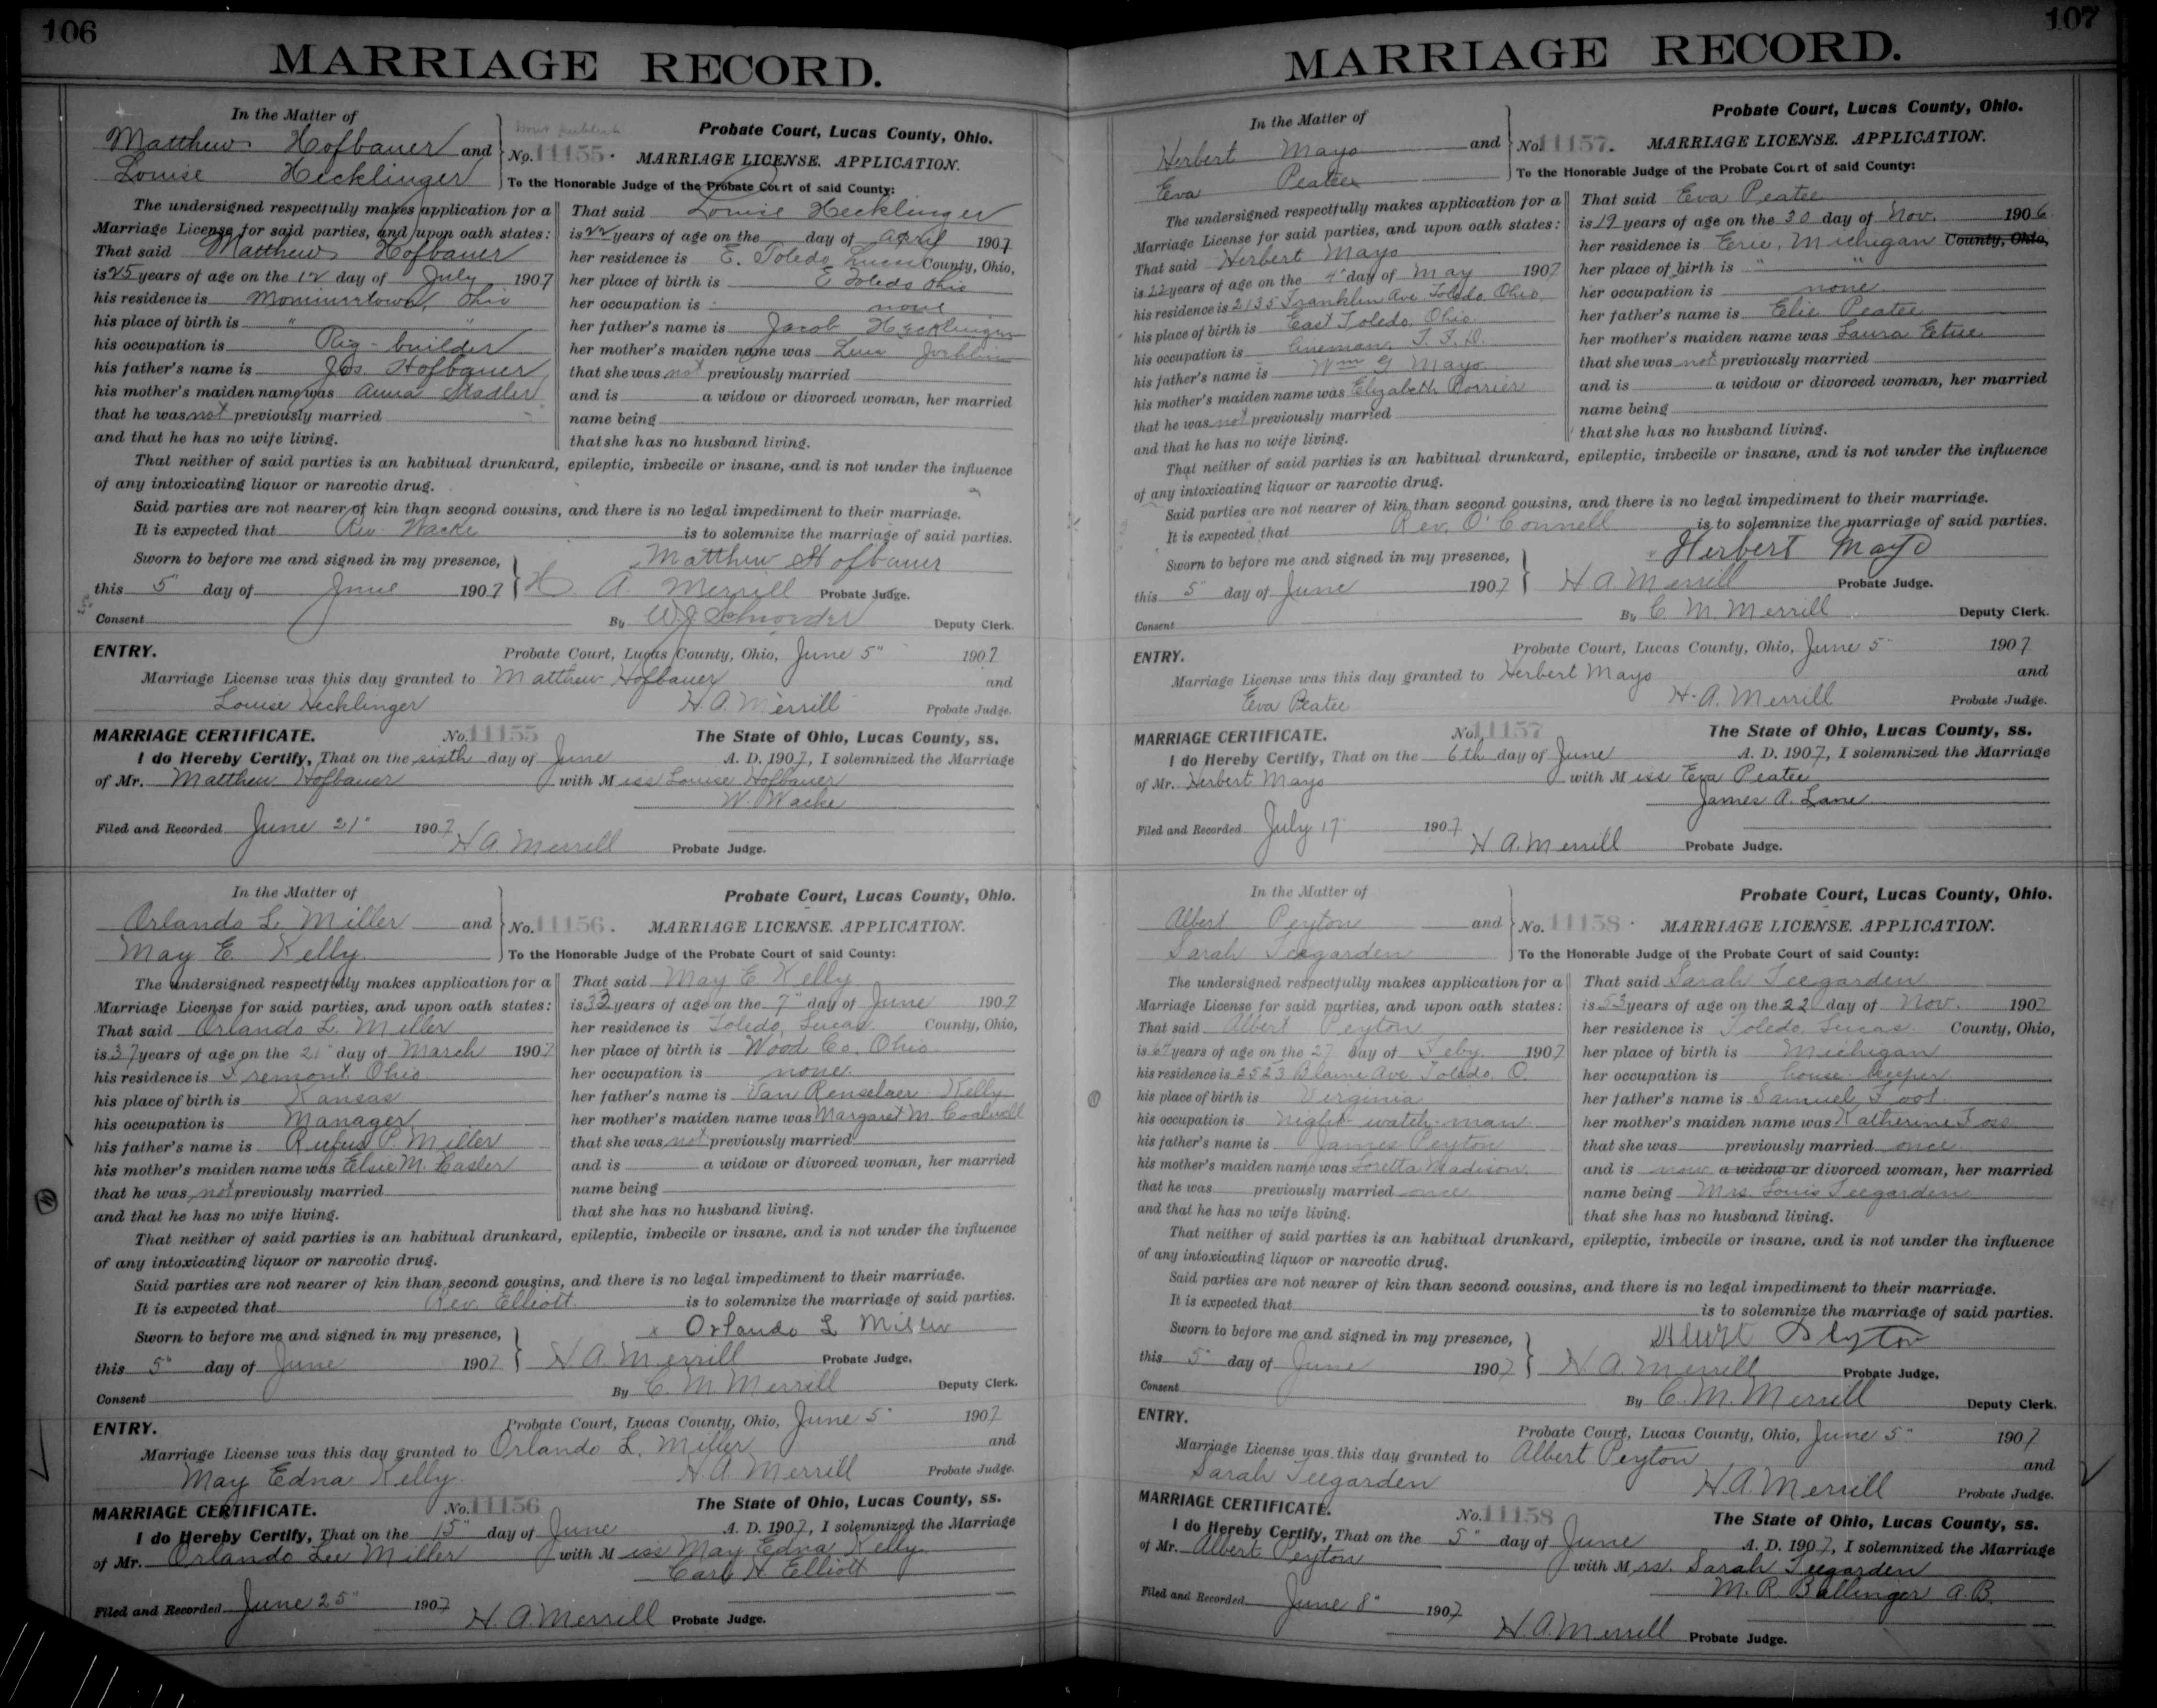 106
MARRIAGE RECORD.
In the Matter of
Matthew Hofbauer and
Louise Hecklinger
No. 11155.
Probate Court, Lucas County, Ohio.
MARRIAGE LICENSE. APPLICATION.
To the Honorable Judge of the Probate Court of said County:
The undersigned respectfully makes application for a
Marriage License for said parties, and upon oath states:
That said Matthew Hofbauer
is 25 years of age on the 12 day of July 1907
his residence is Momineetown, Ohio
his place of birth is " "
his occupation is Rig-builder
his father's name is Jos. Hofbauer
his mother's maiden name was Anna Stadler
that he was not previously married
and that he has no wife living.
That said Louise Hecklinger
is 22 years of age on the day of April 1907
her residence is E. Toledo Lucas County, Ohio,
her place of birth is E Toledo Ohio
her occupation is none
her father's name is Jacob Hecklinger
her mother's maiden name was Lena
that she was not previously married
and is a widow or divorced woman, her married
name being
that she has no husband living.
That neither of said parties is an habitual drunkard, epileptic, imbecile or insane, and is not under the influence
of any intoxicating liquor or narcotic drug.
Said parties are not nearer of kin than second cousins, and there is no legal impediment to their marriage.
It is expected that Rev. Wacke is to solemnize the marriage of said parties.
Sworn to before me and signed in my presence, Matthew Hofbauer
this 5" day of June 1907 H. A. Merrill Probate Judge.
Consent By W. J. Schroeder Deputy Clerk.
ENTRY. Probate Court, Lucas County, Ohio, June 5" 1907
Marriage License was this day granted to Matthew Hofbauer and
Louise Hecklinger H. A. Merrill Probate Judge.
MARRIAGE CERTIFICATE. No. 11155 The State of Ohio, Lucas County, ss.
I do Hereby Certify, That on the sixth day of June A. D. 1907, I solemnized the Marriage
of Mr. Matthew Hofbauer with Miss Louise Hofbauer
W. Wacke
Filed and Recorded June 21" 1907 H. A. Merrill Probate Judge.
In the Matter of
Orlando L. Miller and
May E. Kelly
No. 11156.
Probate Court, Lucas County, Ohio.
MARRIAGE LICENSE. APPLICATION.
To the Honorable Judge of the Probate Court of said County:
The undersigned respectfully makes application for a
Marriage License for said parties, and upon oath states:
That said Orlando L. Miller
is 37 years of age on the 21" day of March 1907
his residence is Fremont Ohio
his place of birth is Kansas
his occupation is Manager
his father's name is Rufus P. Miller
his mother's maiden name was Elsie M. Casler
that he was not previously married
and that he has no wife living.
That said May E Kelly
is 32 years of age on the 7" day of June 1907
her residence is Toledo, Lucas County, Ohio,
her place of birth is Wood Co. Ohio
her occupation is none
her father's name is Van Renselaer Kelly
her mother's maiden name was Margaret M.
that she was not previously married
and is a widow or divorced woman, her married
name being
that she has no husband living.
That neither of said parties is an habitual drunkard, epileptic, imbecile or insane, and is not under the influence
of any intoxicating liquor or narcotic drug.
Said parties are not nearer of kin than second cousins, and there is no legal impediment to their marriage.
It is expected that Rev. Elliott is to solemnize the marriage of said parties.
Sworn to before me and signed in my presence, x Orlando L Miller
this 5" day of June 1907 H. A. Merrill Probate Judge,
Consent By C. M. Merrill Deputy Clerk.
ENTRY. Probate Court, Lucas County, Ohio, June 5" 1907
Marriage License was this day granted to Orlando L. Miller and
May Edna Kelly H. A. Merrill Probate Judge.
MARRIAGE CERTIFICATE. No. 11156 The State of Ohio, Lucas County, ss.
I do Hereby Certify, That on the 15" day of June A. D. 1907, I solemnized the Marriage
of Mr. Orlando Lee Miller with Miss May Edna Kelly
Carl H Elliott
Filed and Recorded June 25" 1907 H. A. Merrill Probate Judge.
107
MARRIAGE RECORD.
In the Matter of
Herbert Mayo and
Eva Peatee
No. 11157.
Probate Court, Lucas County, Ohio.
MARRIAGE LICENSE. APPLICATION.
To the Honorable Judge of the Probate Court of said County:
The undersigned respectfully makes application for a
Marriage License for said parties, and upon oath states:
That said Herbert Mayo
is 22 years of age on the 4" day of May 1907
his residence is 2135 Franklin Ave. Toledo, Ohio
his place of birth is East Toledo, Ohio
his occupation is Lineman, T. F. D.
his father's name is Wm G Mayo
his mother's maiden name was Elizabeth Porrier
that he was not previously married
and that he has no wife living.
That said Eva Peatee
is 19 years of age on the 30 day of Nov. 1906
her residence is Erie, Michigan County, Ohio,
her place of birth is " "
her occupation is none
her father's name is Elie Peatee
her mother's maiden name was Laura Etue
that she was not previously married
and is a widow or divorced woman, her married
name being
that she has no husband living.
That neither of said parties is an habitual drunkard, epileptic, imbecile or insane, and is not under the influence
of any intoxicating liquor or narcotic drug.
Said parties are not nearer of kin than second cousins, and there is no legal impediment to their marriage.
It is expected that Rev. O'Connell is to solemnize the marriage of said parties.
Sworn to before me and signed in my presence, Herbert Mayo
this 5" day of June 1907 H. A. Merrill Probate Judge.
Consent By C. M. Merrill Deputy Clerk.
ENTRY. Probate Court, Lucas County, Ohio, June 5" 1907
Marriage License was this day granted to Herbert Mayo and
Eva Peatee H. A. Merrill Probate Judge.
MARRIAGE CERTIFICATE. No. 11157 The State of Ohio, Lucas County, ss.
I do Hereby Certify, That on the 6th day of June A. D. 1907, I solemnized the Marriage
of Mr. Herbert Mayo with Miss Eva Peatee
James A. Lane
Filed and Recorded July 17" 1907 H. A. Merrill Probate Judge.
In the Matter of
Albert Peyton and
Sarah Teegarden
No. 11158.
Probate Court, Lucas County, Ohio.
MARRIAGE LICENSE. APPLICATION.
To the Honorable Judge of the Probate Court of said County:
The undersigned respectfully makes application for a
Marriage License for said parties, and upon oath states:
That said Albert Peyton
is 64 years of age on the 27 day of Feby. 1907
his residence is 2523 Blaine Ave. Toledo, O.
his place of birth is Virginia
his occupation is Night watch-man
his father's name is James Peyton
his mother's maiden name was Loretta Madison
that he was previously married once
and that he has no wife living.
That said Sarah Teegarden
is 53 years of age on the 22 day of Nov. 1907
her residence is Toledo, Lucas County, Ohio,
her place of birth is Michigan
her occupation is house-keeper
her father's name is Samuel Foot
her mother's maiden name was Katherine Foss
that she was previously married once
and is now a widow or divorced woman, her married
name being Mrs. Louis Teegarden
that she has no husband living.
That neither of said parties is an habitual drunkard, epileptic, imbecile or insane, and is not under the influence
of any intoxicating liquor or narcotic drug.
Said parties are not nearer of kin than second cousins, and there is no legal impediment to their marriage.
It is expected that is to solemnize the marriage of said parties.
Sworn to before me and signed in my presence, Albert Peyton
this 5" day of June 1907 H. A. Merrill Probate Judge,
Consent By C. M. Merrill Deputy Clerk.
ENTRY. Probate Court, Lucas County, Ohio, June 5" 1907
Marriage License was this day granted to Albert Peyton and
Sarah Teegarden H. A. Merrill Probate Judge.
MARRIAGE CERTIFICATE. No. 11158 The State of Ohio, Lucas County, ss.
I do Hereby Certify, That on the 5" day of June A. D. 1907, I solemnized the Marriage
of Mr. Albert Peyton with Mrs. Sarah Teegarden
M. R. Ballinger A.B.
Filed and Recorded June 8" 1907 H. A. Merrill Probate Judge.